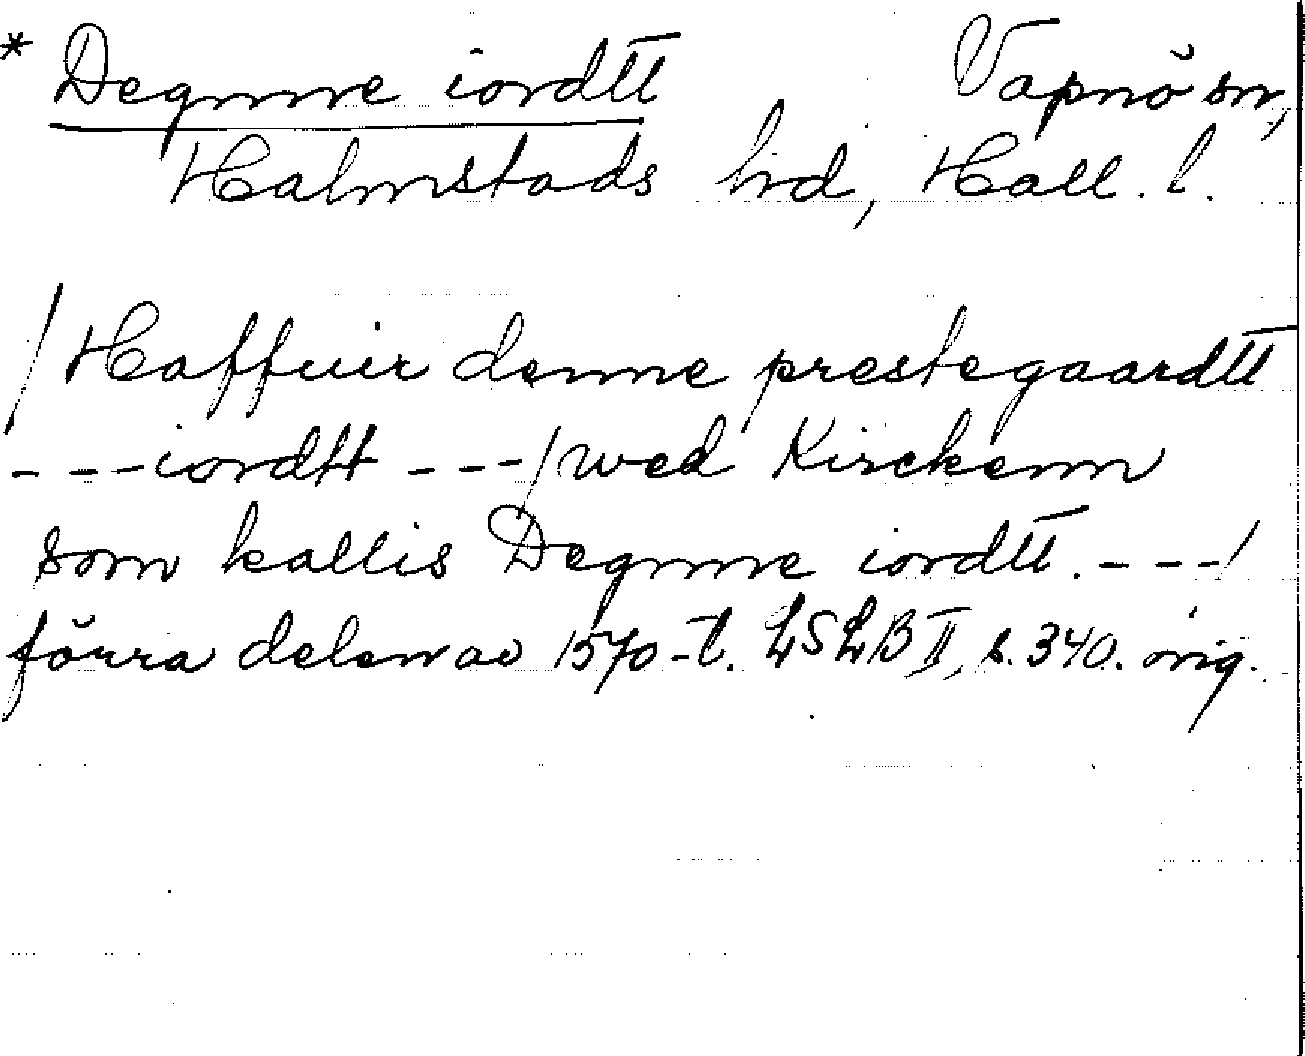 * Degnne iordtt Vapnö sn,
Halmstads hd, Hall. l.
/Haffuir denne prestegaardtt
---iordtt ---/wed Kirckenn
som kallis Degnne iordtt.---/
förra delen av 1570-t. LSLB II, s. 340. orig.